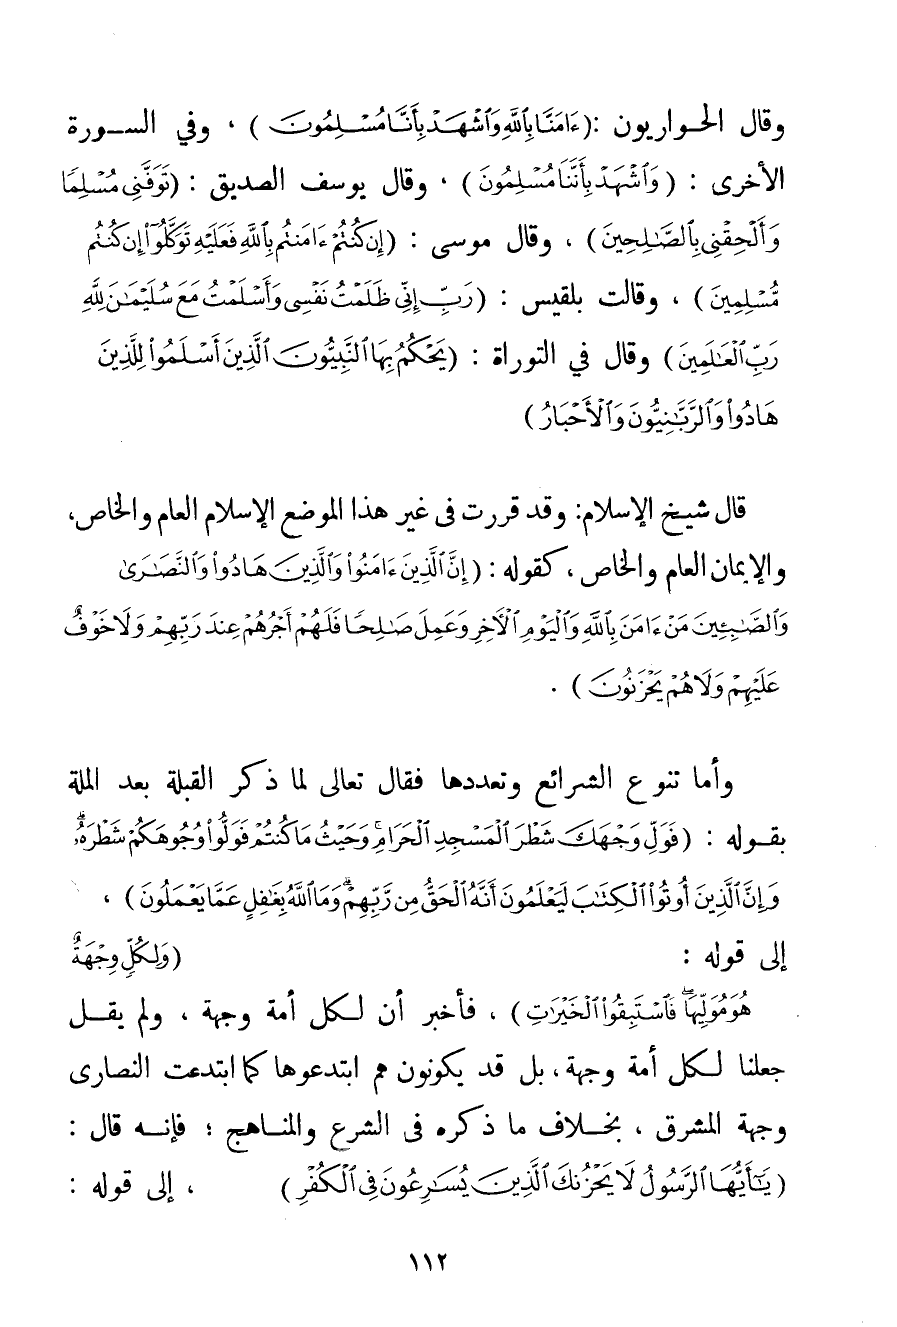 وقال الحواريون :(ءَامَنَّا بِٱللَّهِ وَٱشْهَدْ بِأَنَّا مُسْلِمُونَ) ، وفي السورة
الأخرى : (وَٱشْهَدْ بِأَنَّنَا مُسْلِمُونَ) ، وقال يوسف الصديق : (تَوَفَّنِى مُسْلِمًا
وَأَلْحِقْنِى بِٱلصَّٰلِحِينَ) ، وقال موسى : (إِن كُنتُمْ ءَامَنتُم بِٱللَّهِ فَعَلَيْهِ تَوَكَّلُوٓا۟ إِن كُنتُم
مُّسْلِمِينَ) ، وقالت بلقيس : (رَبِّ إِنِّى ظَلَمْتُ نَفْسِى وَأَسْلَمْتُ مَعَ سُلَيْمَٰنَ لِلَّهِ
رَبِّ ٱلْعَٰلَمِينَ) وقال في التوراة : (يَحْكُمُ بِهَا ٱلنَّبِيُّونَ ٱلَّذِينَ أَسْلَمُوا۟ لِلَّذِينَ
هَادُوا۟ وَٱلرَّبَّٰنِيُّونَ وَٱلْأَحْبَارُ)
قال شيخ الإسلام: وقد قررت فى غير هذا الموضع الإسلام العام والخاص،
والإيمان العام والخاص ، كقوله : (إِنَّ ٱلَّذِينَ ءَامَنُوا۟ وَٱلَّذِينَ هَادُوا۟ وَٱلنَّصَٰرَىٰ
وَٱلصَّٰبِـِٔينَ مَنْ ءَامَنَ بِٱللَّهِ وَٱلْيَوْمِ ٱلْـَٔاخِرِ وَعَمِلَ صَٰلِحًا فَلَهُمْ أَجْرُهُمْ عِندَ رَبِّهِمْ وَلَا خَوْفٌ
عَلَيْهِمْ وَلَا هُمْ يَحْزَنُونَ) .
وأما تنوع الشرائع وتعددها فقال تعالى لما ذكر القبلة بعد الملة
بقوله : (فَوَلِّ وَجْهَكَ شَطْرَ ٱلْمَسْجِدِ ٱلْحَرَامِ ۚ وَحَيْثُ مَا كُنتُمْ فَوَلُّوا۟ وُجُوهَكُمْ شَطْرَهُۥ ۗ
وَإِنَّ ٱلَّذِينَ أُوتُوا۟ ٱلْكِتَٰبَ لَيَعْلَمُونَ أَنَّهُ ٱلْحَقُّ مِن رَّبِّهِمْ ۗ وَمَا ٱللَّهُ بِغَٰفِلٍ عَمَّا يَعْمَلُونَ) ،
إلى قوله : (وَلِكُلٍّ وِجْهَةٌ
هُوَ مُوَلِّيهَا ۖ فَٱسْتَبِقُوا۟ ٱلْخَيْرَٰتِ) ، فأخبر أن لكل أمة وجهة ، ولم يقل
جعلنا لكل أمة وجهة ، بل قد يكونون هم ابتدعوها كما ابتدعت النصارى
وجهة المشرق ، بخلاف ما ذكره فى الشرع والمناهج ؛ فإنه قال :
(يَٰٓأَيُّهَا ٱلرَّسُولُ لَا يَحْزُنكَ ٱلَّذِينَ يُسَٰرِعُونَ فِى ٱلْكُفْرِ) ، إلى قوله :
١١٢